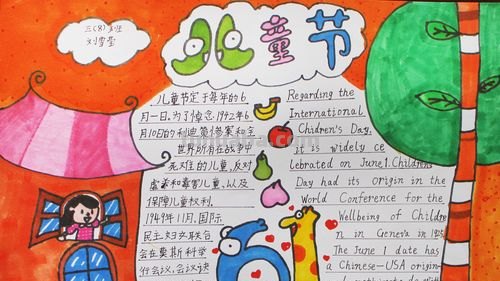 三(8)班
刘雪莹
儿童节
儿童节定于每年的6
月一日。为了悼念1942年6
月10日的利迪策惨案和全
世界所有在战争中
死难的儿童,反对
虐杀和毒害儿童,以及
保障儿童权利.
1949年11月,国际
民主妇女联合
会在莫斯科举
行会议,会议决
Regarding the
International
Chidren's Day.
it is widely ce
lebrated on June1.Children
Day had its origin in the
World Conference for the
Wellbeing of Childre
n in Geneva in 1925
The June 1 date has
a Chinese-USA origin.
61